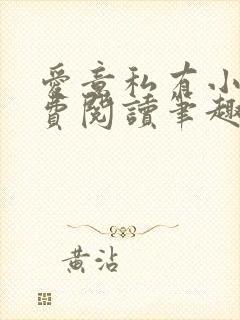 愛意私有小
費閱讀筆趣
黃沾